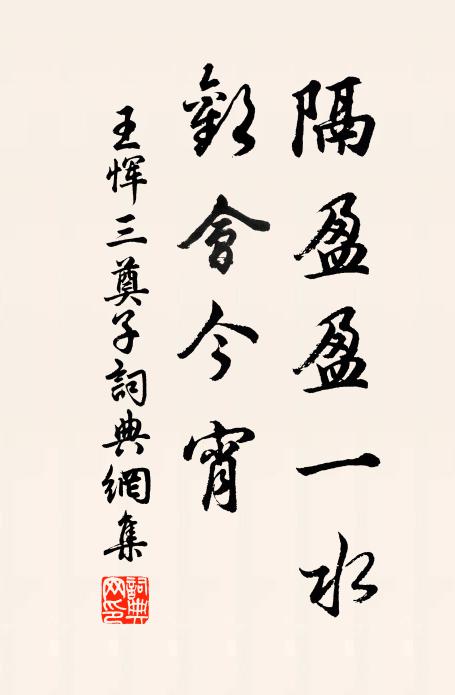 隔盈盈一水
歡會今宵
王惲三奠子詞典網集
詞典网印